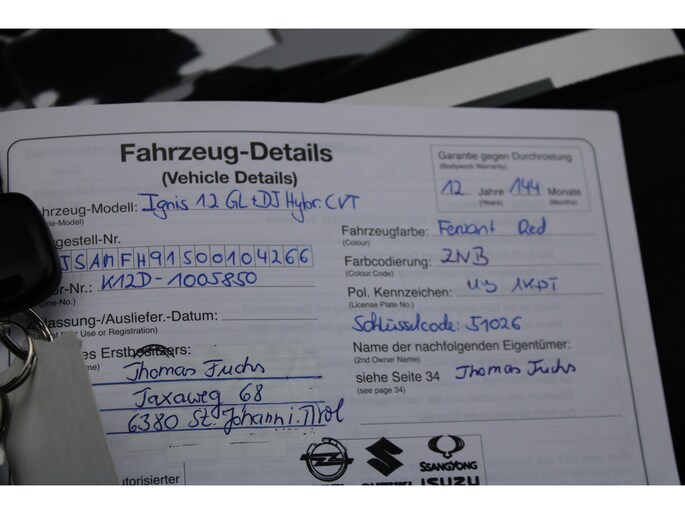 Fahrzeug-Details
(Vehicle Details)
Garantie gegen Durchrostung
(Bodywork Warranty)
12 Jahre 144 Monate
(Years) (Months)
Fahrzeug-Modell: Ignis 1.2 GL+ DJ Hybr. CVT
Fahrzeugfarbe: Fervant Red
(Colour)
gestell-Nr.
JSAMFH91S00104266
Farbcodierung: ZNB
(Colour Code)
or-Nr.: K12D-1005850
gine-No.)
Pol. Kennzeichen:
(License Plate No.)
lassung-/Ausliefer.-Datum:
Use or Registration)
Schlüsselcode: 51026
es Erstbesitzers:
Name der nachfolgenden Eigentümer:
(2nd Owner Name)
Thomas Fuchs
siehe Seite 34 Thomas Fuchs
(see page 34)
Taxaweg 68
6380 St. Johann i. Tirol
torisierter
SUZUKI
SSANGYONG
ISUZU